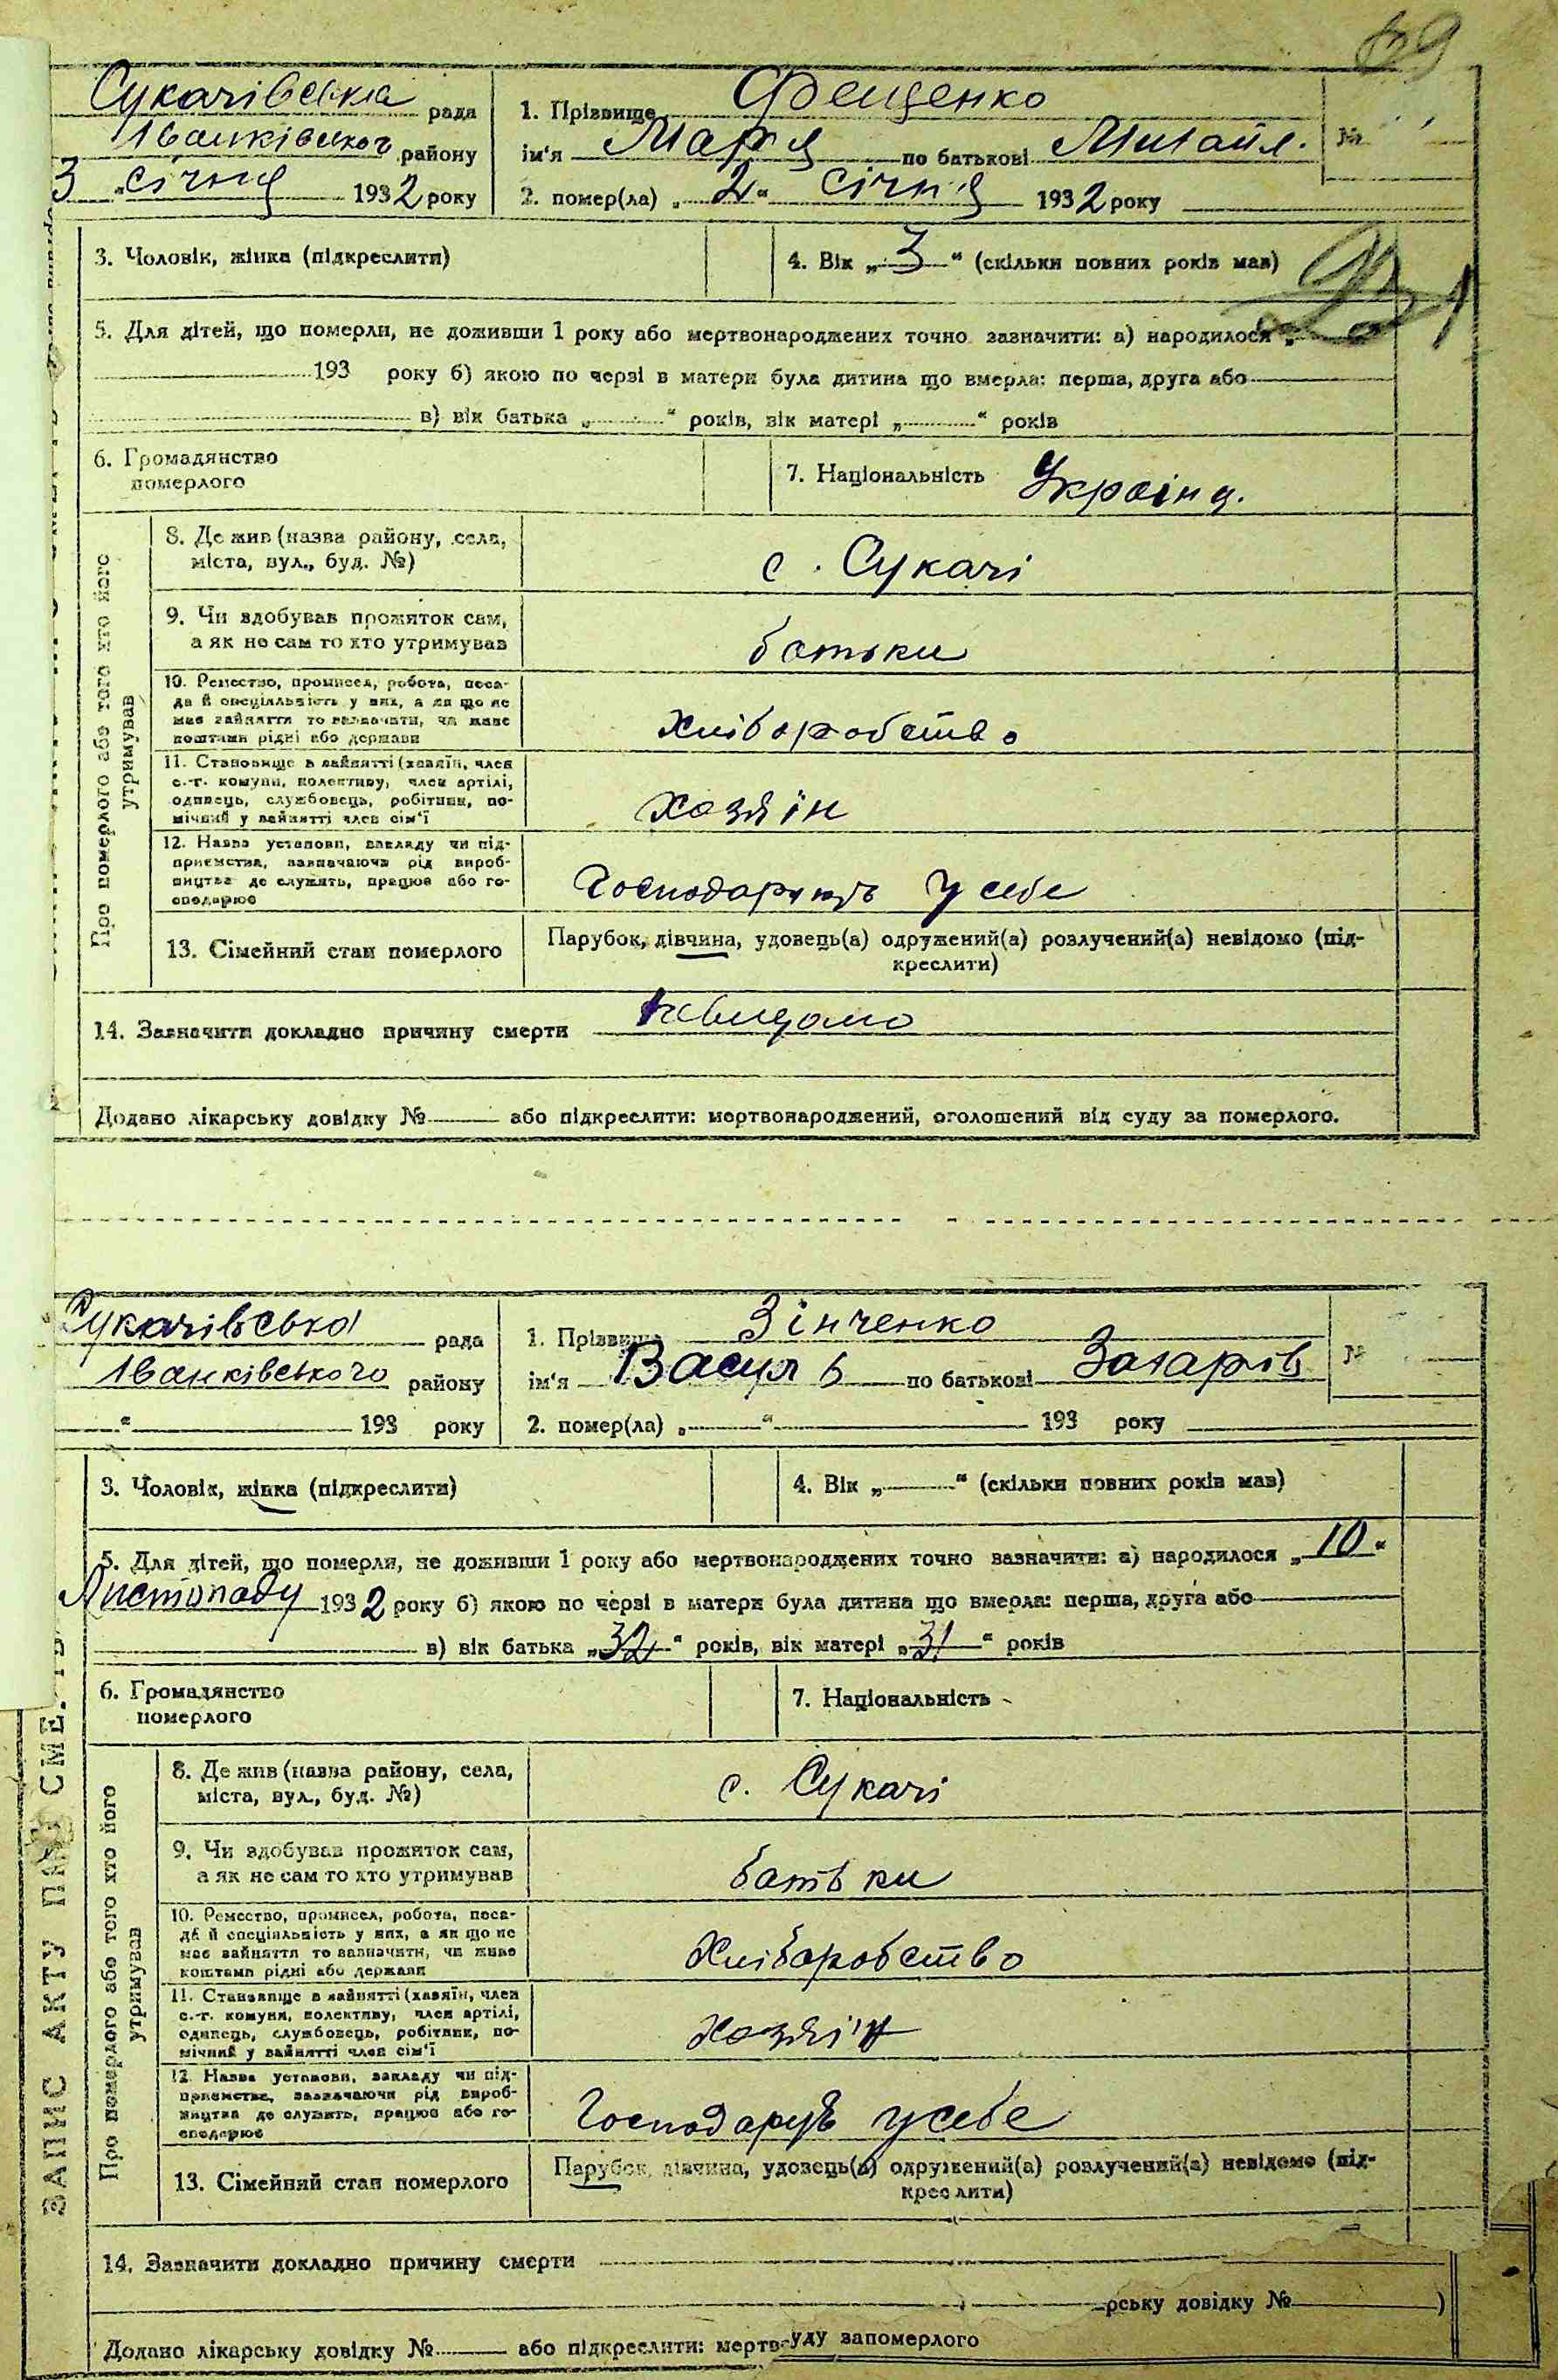 89
Сукачівська рада
Іванківськог району
3 „ січня 1932 року
1. Прізвище Фещенко
ім'я Марія по батькові Михайл.
№
2. помер(ла) „ 2 “ січня 1932 року
3. Чоловік, жінка (підкреслити)
4. Вік „ 3 “ (скільки повних років мав)
5. Для дітей, що померли, не доживши 1 року або мертвонароджених точно зазначити: а) народилося „
193 року б) якою по черзі в матери була дитина що вмерла: перша, друга або
в) вік батька „ “ років, вік матері „ “ років
6. Громадянство
померлого
7. Національність Українц.
Про померлого або того хто його
утримував
8. Де жив (назва району, села,
міста, вул., буд. №)
с. Сукачі
9. Чи здобував прожиток сам,
а як не сам то хто утримував
батьки
10. Ремество, промисел, робота, поса-
да й спеціяльність у них, а як що не
має зайняття то зазначити, чи живе
коштами рідні або держави
Хліборобство
11. Становище в зайнятті (хазяїн, член
с.-г. комуни, колективу, член артілі,
одинець, службовець, робітник, по-
мічний у зайнятті член сім'ї
Хозяїн
12. Назва установи, закладу чи під-
приємства, зазначаючи рід вироб-
ництва де служить, працює або го-
сподарює
Господарують у себе
13. Сімейний стан померлого
Парубок, дівчина, удовець(а) одружений(а) розлучений(а) невідомо (під-
креслити)
14. Зазначити докладно причину смерти невидомо
Додано лікарську довідку № або підкреслити: мертвонароджений, оголошений від суду за померлого.
Сукачівська рада
Іванківського району
“ 193 року
1. Прізвище Зінченко
ім'я Василь по батькові Захарів
№
2. помер(ла) „ “ 193 року
3. Чоловік, жінка (підкреслити)
4. Вік „ “ (скільки повних років мав)
5. Для дітей, що померли, не доживши 1 року або мертвонароджених точно зазначити: а) народилося „ 10 “
Листопаду 1932 року б) якою по черзі в матери була дитина що вмерла: перша, друга або
в) вік батька „ 32 “ років, вік матері „ 31 “ років
6. Громадянство
померлого
7. Національність
ЗАПИС АКТУ ПРО СМЕРТЬ
Про померлого або того хто його
утримував
8. Де жив (назва району, села,
міста, вул., буд. №)
с. Сукачі
9. Чи здобував прожиток сам,
а як не сам то хто утримував
батьки
10. Ремество, промисел, робота, поса-
да й спеціяльність у них, а як що не
має зайняття то зазначити, чи живе
коштами рідні або держави
Хліборобство
11. Становище в зайнятті (хазяїн, член
с.-г. комуни, колективу, член артілі,
одинець, службовець, робітник, по-
мічний у зайнятті член сім'ї
Хозяїн
12. Назва установи, закладу чи під-
приємства, зазначаючи рід вироб-
ництва де служить, працює або го-
сподарює
Господарує у себе
13. Сімейний стан померлого
Парубок, дівчина, удовець(а) одружений(а) розлучений(а) невідомо (під-
креслити)
14. Зазначити докладно причину смерти
рську довідку № )
Додано лікарську довідку № або підкреслити: мертв
уду запомерлого